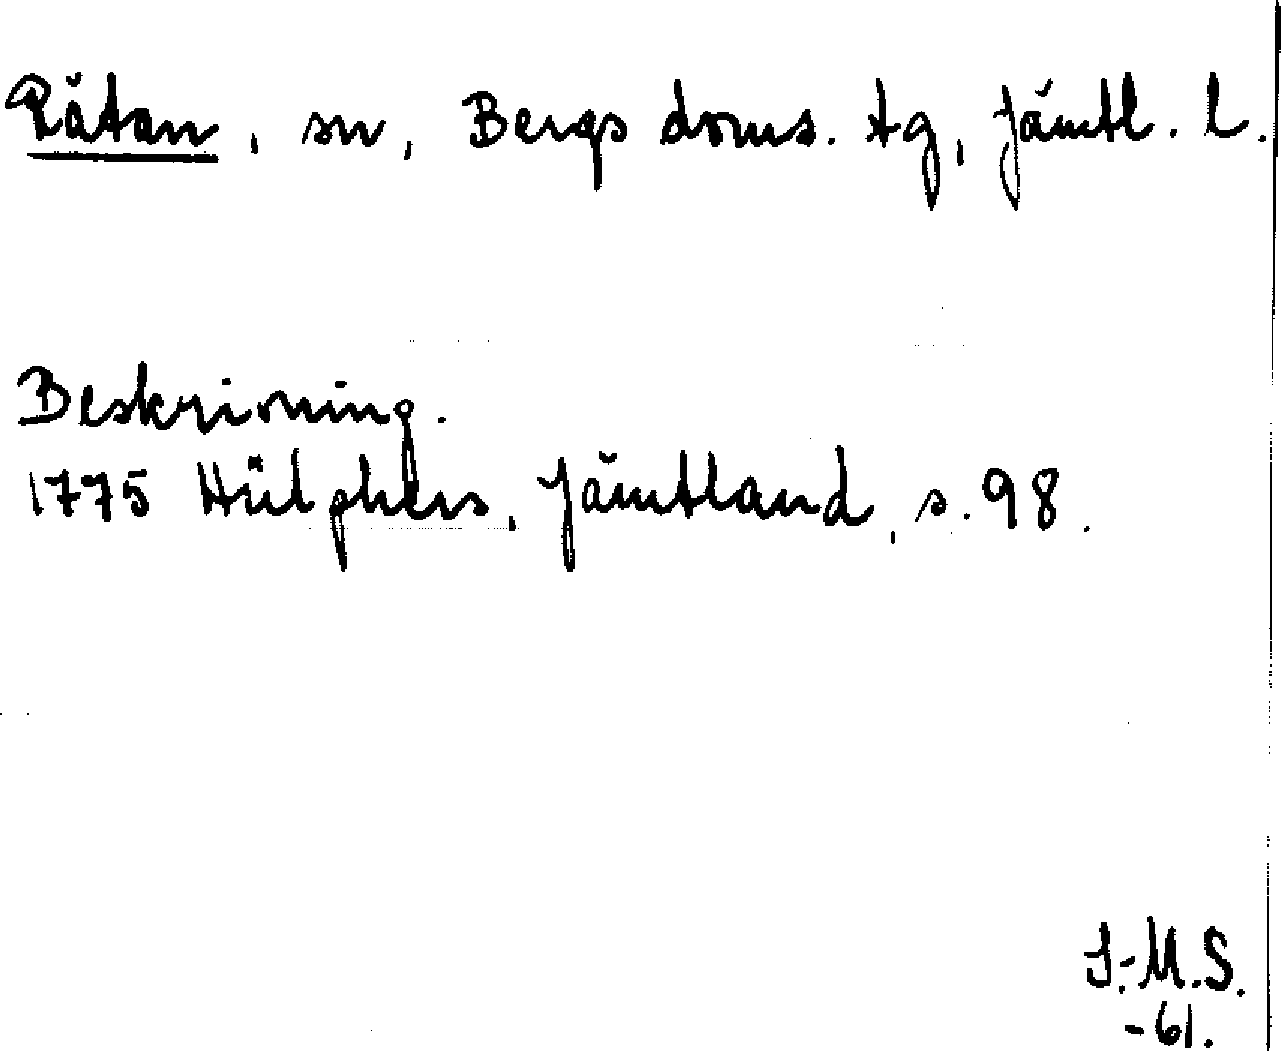 Rätan, sn, Bergs doms. tg, Jämtl. l.
Beskrivning.
1775 Hülphers, Jämtland, s. 98.
I.-M.S.
-61.